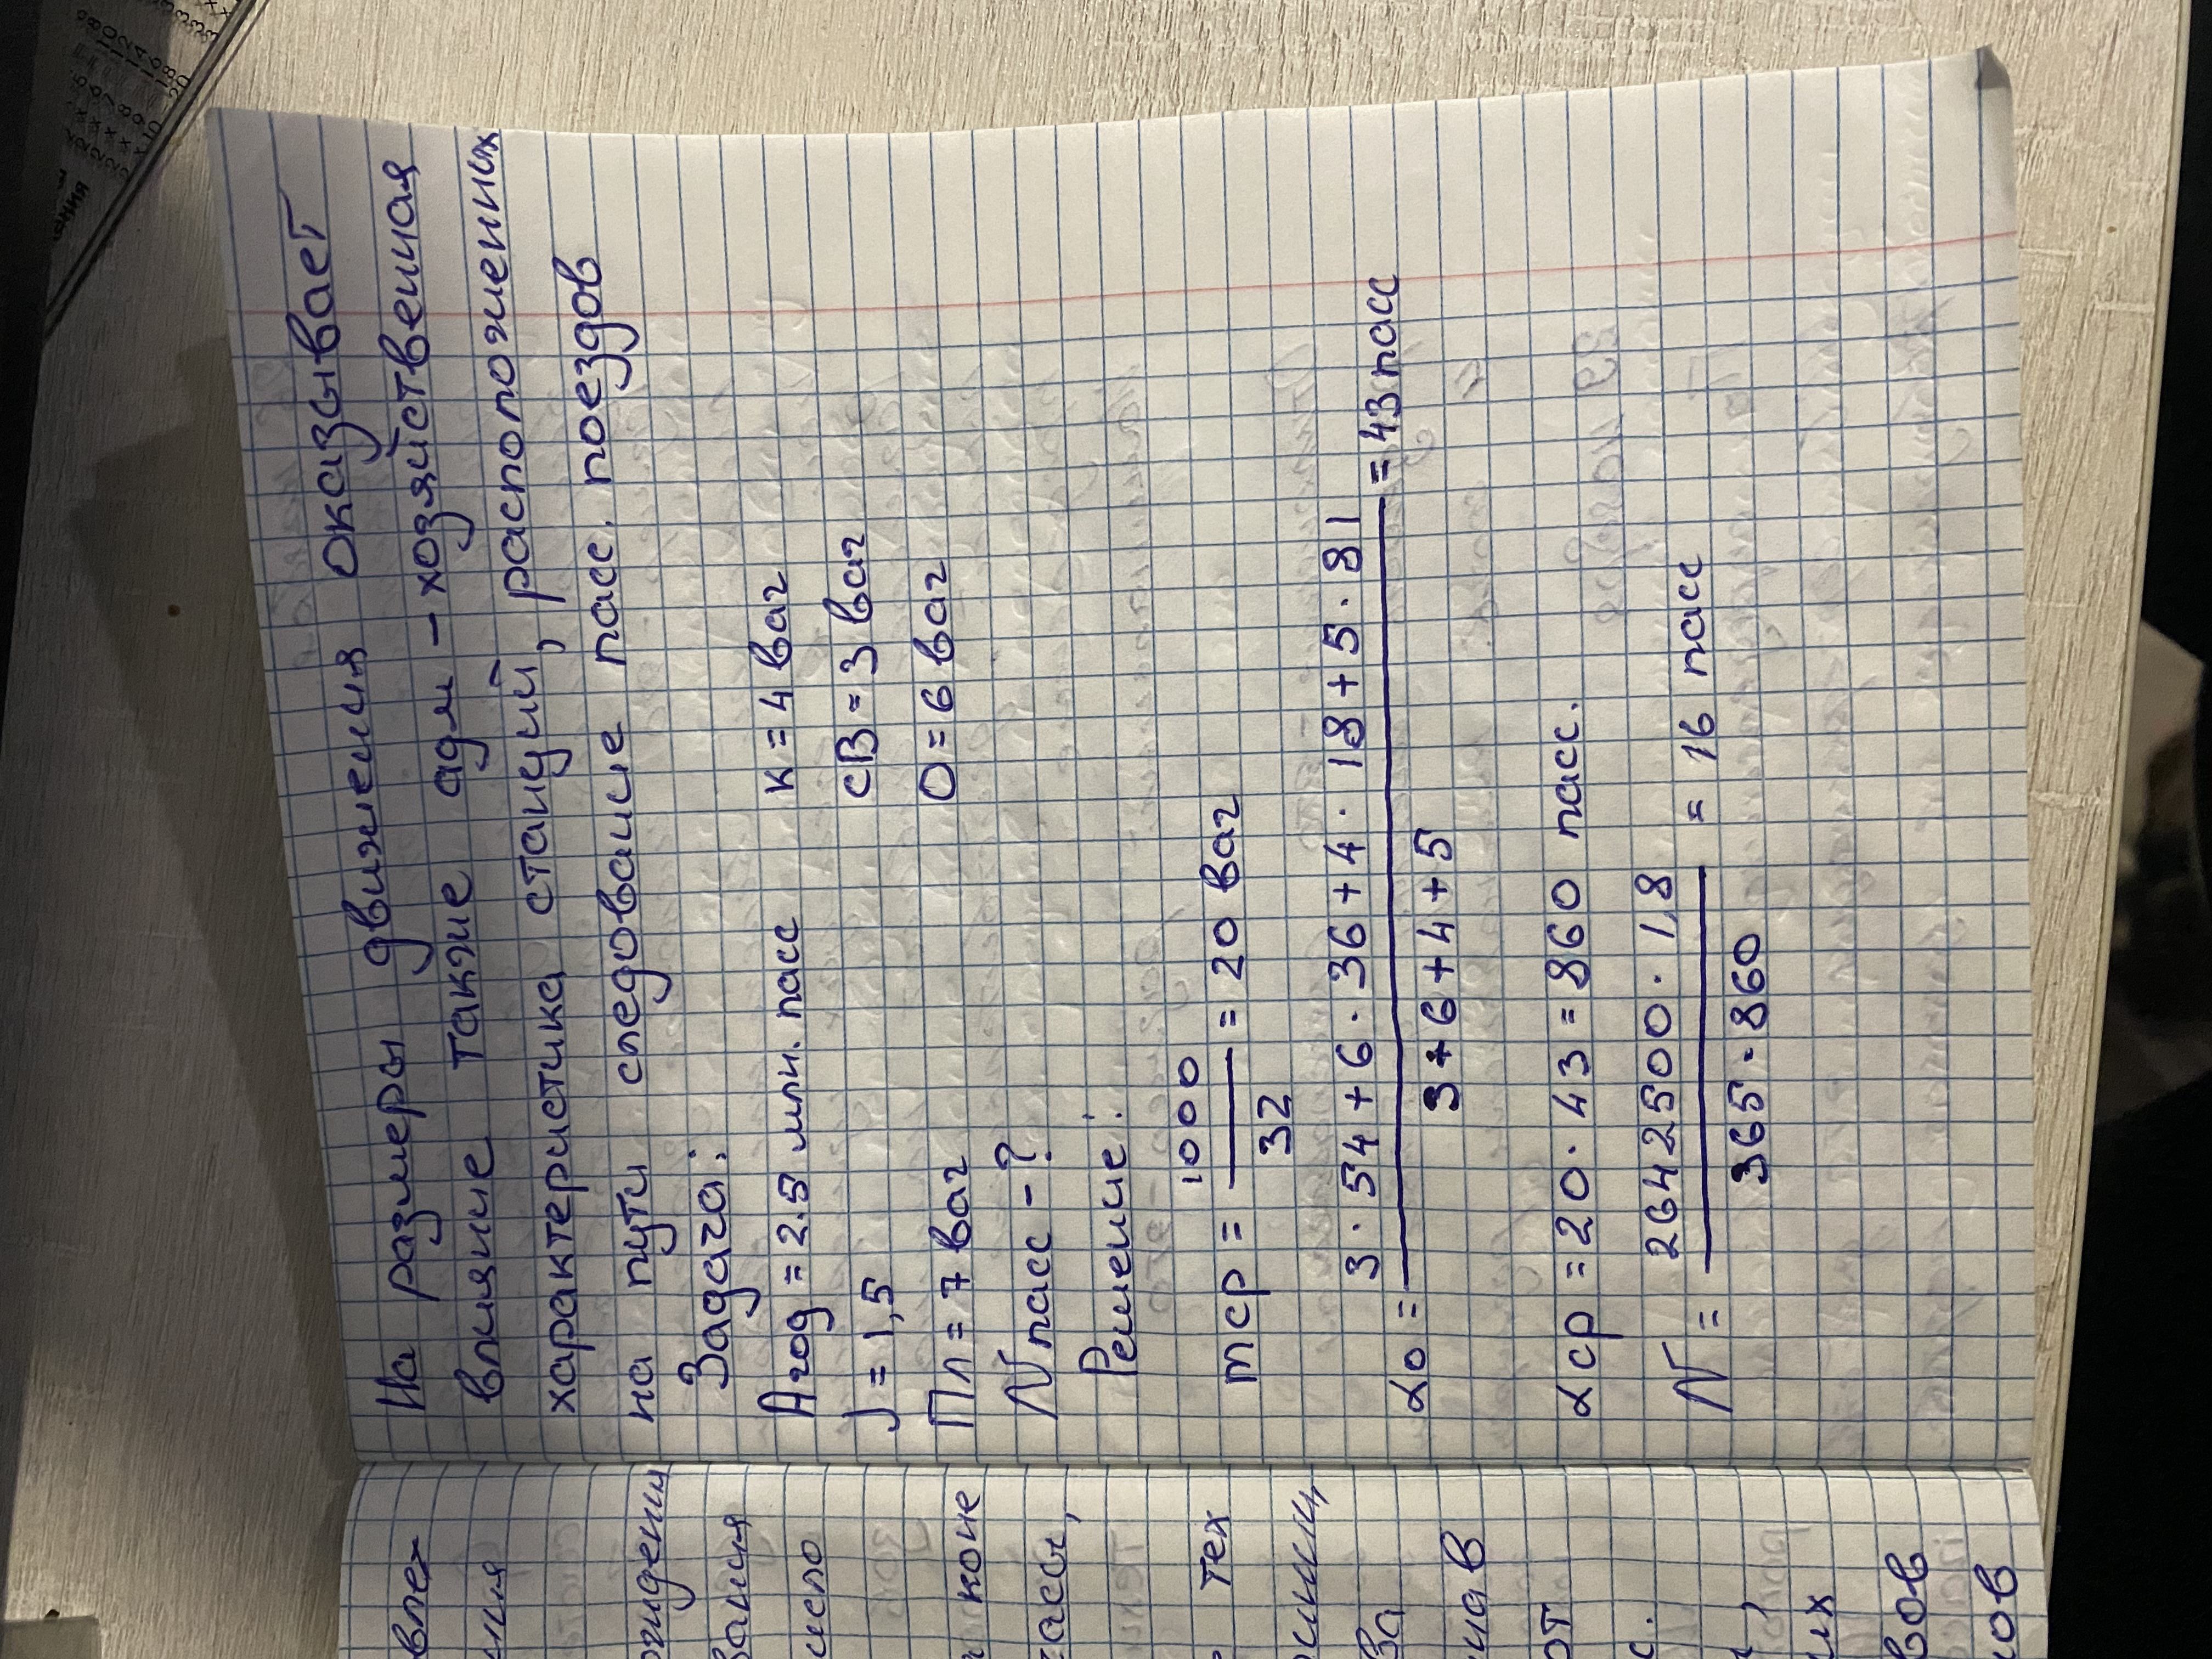 На размеры движения оказывает
влияние также адм - хозяйственная
характеристика станций, расположенных
на пути следование пасс. поездов
Задача:
Агод = 2.5 млн. пасс к = 4 ваг
J = 1,5 св = 3 ваг
Пл = 7 ваг О = 6 ваг
N пасс - ?
Решение:
mср = 1000 / 32 = 20 ваг
αо = 3 · 54 + 6 · 36 + 4 · 18 + 5 · 81 / 3 + 6 + 4 + 5 = 43 пасс
αср = 20 · 43 = 860 пасс.
N = 2642500 · 1,8 / 365 · 860 = 16 пасс
влех
ния
ования
исло
коне
ассы,
тех
ва
нив
от
с.
их
вов
нов